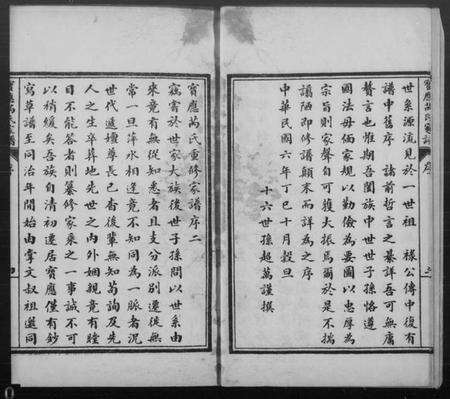 世系源流見於一世祖 樣公傳中復有
譜中舊序 諸前哲言之綦詳吾可無庸
贅言也惟期吾闔族中世世子孫恪遵
國法毋悔家規以勤儉為要圖以忠厚為
宗旨則家聲自可獲大振焉爾於是不揣
譾陋即修譜顛末而詳為之序
中華民國六年丁巳十月穀旦
十六世孫超萬謹撰
寶應萬氏重修家譜序二
竊嘗於世家大族後世子孫問以世系由
來竟有無從知悉者且支分派別遷徙無
常一旦萍水相逢竟不知同為一脈者況
世代遞嬗尊長已耆後輩無知茍詢及先
人之生卒葬地先世之內外姻親竟有瞠
目不能答者則纂修家乘之一事誠不可
以稍緩矣吾族自清初遷居寶應僅有鈔
寫草譜至同治年間始由 文叔祖選同